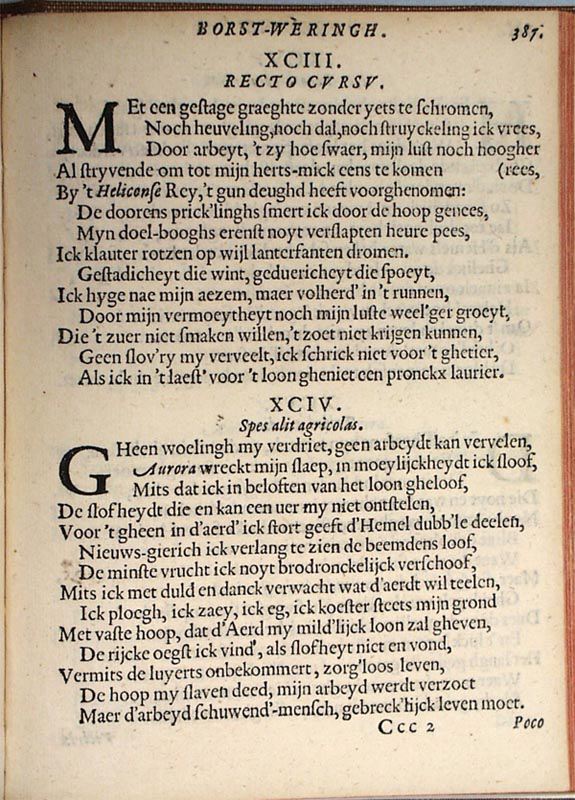 BORST-WERINGH. 387.
XCIII.
RECTO CVRSV.
MEt een gestage graeghte zonder yets te schromen,
Noch heuveling, noch dal, noch struyckeling ick vrees,
Door arbeyt, 't zy hoe swaer, mijn lust noch hoogher
Al stryvende om tot mijn herts-mick eens te komen (rees,
By 't Heliconse Rey, 't gun deughd heeft voorghenomen:
De doorens prick'linghs smert ick door de hoop genees,
Myn doel-booghs erenst noyt verslapten heure pees,
Ick klauter rotzen op wijl lanterfanten dromen.
Gestadicheyt die wint, geduericheyt die spoeyt,
Ick hyge nae mijn aezem, maer volherd' in 't runnen,
Door mijn vermoeytheyt noch mijn luste weel'ger groeyt,
Die 't zuer niet smaken willen, 't zoet niet krijgen kunnen,
Geen slov'ry my verveelt, ick schrick niet voor 't ghetier,
Als ick in 't laest' voor 't loon gheniet een pronckx laurier.
XCIV.
Spes alit agricolas.
GHeen woelingh my verdriet, geen arbeydt kan vervelen,
Aurora wreckt mijn slaep, in moeylijckheydt ick sloof,
Mits dat ick in beloften van het loon gheloof,
De slofheydt die en kan een uer my niet ontstelen,
Voor 't gheen in d'aerd' ick stort geeft d'Hemel dubb'le deelen,
Nieuws-gierich ick verlang te zien de beemdens loof,
De minste vrucht ick noyt brodronckelijck verschoof,
Mits ick met duld en danck verwacht wat d'aerdt wil teelen,
Ick ploegh, ick zaey, ick eg, ick koester steets mijn grond
Met vaste hoop, dat d'Aerd my mild'lijck loon zal gheven,
De rijcke oegst ick vind', als slofheyt niet en vond,
Vermits de luyerts onbekommert, zorg'loos leven,
De hoop my slaven deed, mijn arbeyd werdt verzoet
Maer d'arbeyd schuwend'-mensch, gebreck'lijck leven moet.
Ccc 2 Poco